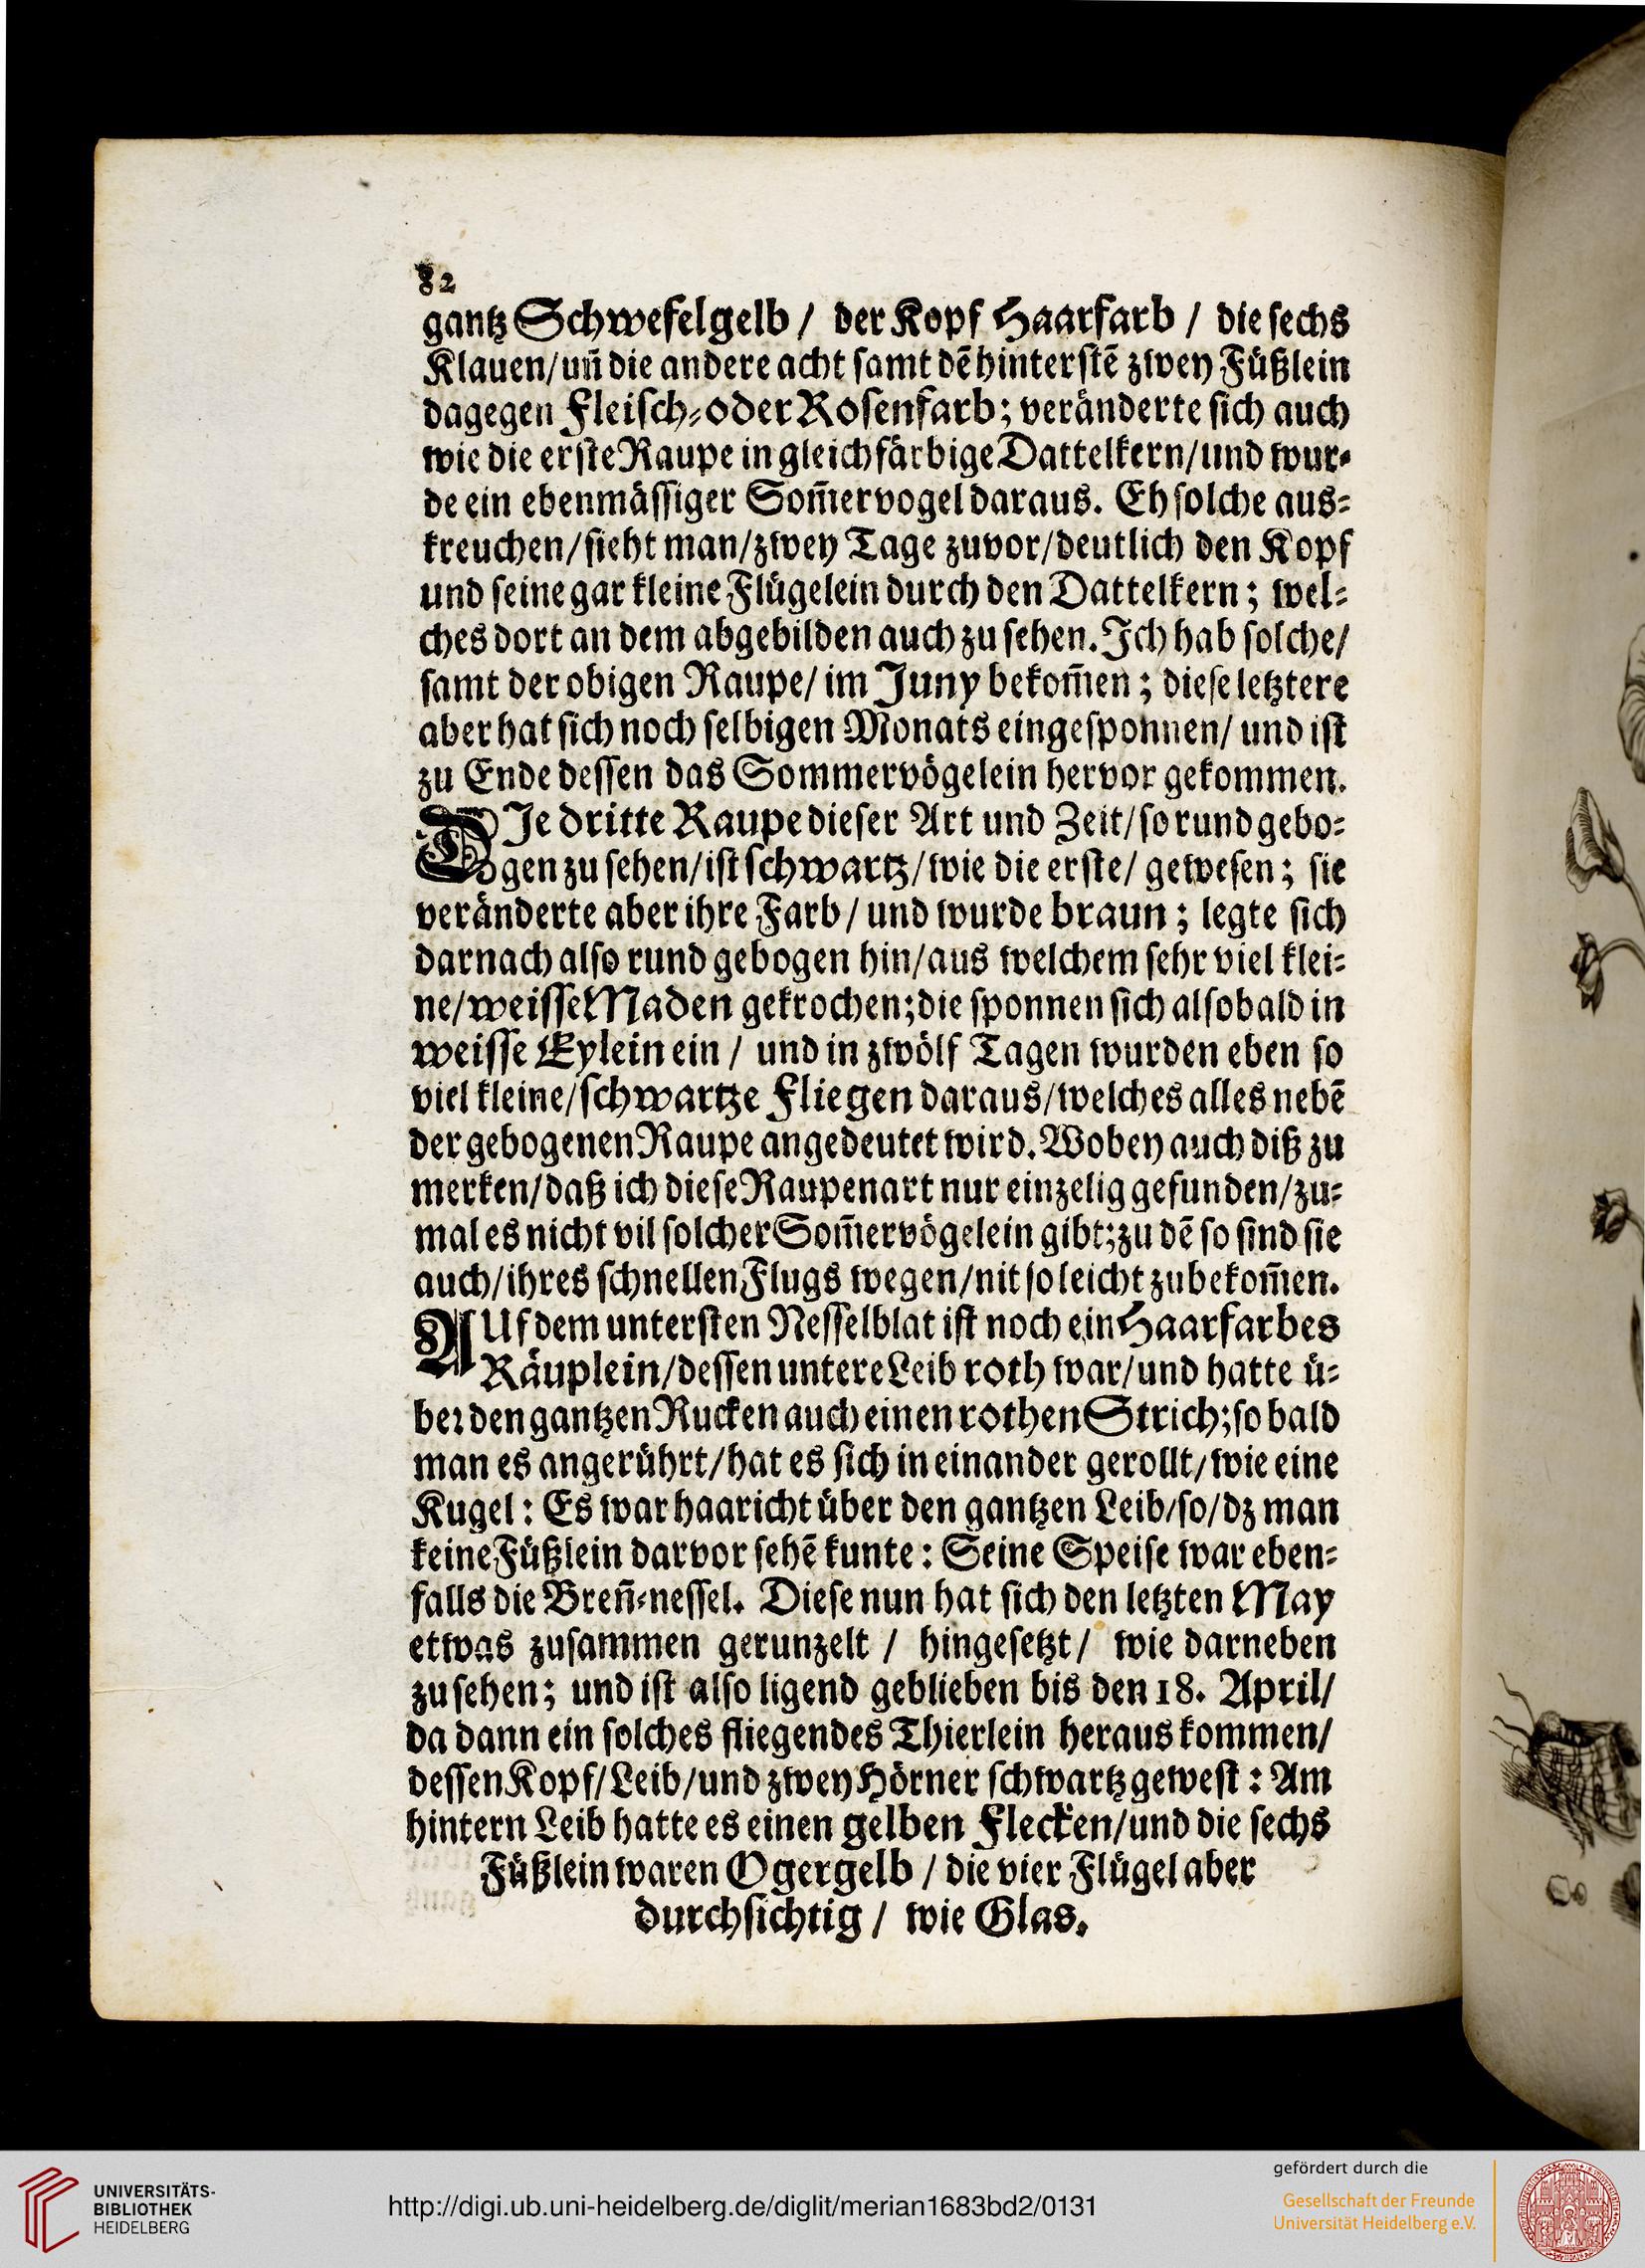 82
gantz Schwefelgelb / der Kopf Haarfarb / die sechs
Klauen/ un̄ die andere acht samt dē hinterstē zwey Füßlein
dagegen Fleisch-oder Rosenfarb; veränderte sich auch
wie die erste Raupe in gleichfärbige Dattelkern/ und wur-
de ein ebenmässiger Som̄ervogel daraus. Eh solche aus-
kreuchen/ sieht man/ zwey Tage zuvor/ deutlich den Kopf
und seine gar kleine Flügelein durch den Dattelkern; wel-
ches dort an dem abgebilden auch zu sehen. Ich hab solche/
samt der obigen Raupe/ im Juny bekom̄en; diese letztere
aber hat sich noch selbigen Monats eingesponnen/ und ist
zu Ende dessen das Sommervögelein hervor gekommen.
DIe dritte Raupe dieser Art und Zeit/ so rund gebo-
gen zu sehen/ ist schwartz/ wie die erste/ gewesen; sie
veränderte aber ihre Farb/ und wurde braun; legte sich
darnach also rund gebogen hin/ aus welchem sehr viel klei-
ne/ weisse Maden gekrochen; die sponnen sich alsobald in
weisse Eylein ein / und in zwölf Tagen wurden eben so
viel kleine/ schwartze Fliegen daraus/ welches alles nebē
der gebogenen Raupe angedeutet wird. Wobey auch diß zu
merken/ daß ich diese Raupenart nur einzelig gefunden/ zu-
mal es nicht vil solcher Som̄ervögelein gibt; zu dē so sind sie
auch/ ihres schnellen Flugs wegen/ nit so leicht zubekom̄en.
AUf dem untersten Nesselblat ist noch ein Haarfarbes
Räuplein/ dessen untere Leib roth war/ und hatte ü-
ber den gantzen Rucken auch einen rothen Strich; so bald
man es angerührt/ hat es sich in einander gerollt/ wie eine
Kugel: Es war haaricht über den gantzen Leib/ so/ dz man
keine Füßlein darvor sehē kunte: Seine Speise war eben-
falls die Bren̄-nessel. Diese nun hat sich den letzten May
etwas zusammen gerunzelt / hingesetzt/ wie darneben
zu sehen; und ist also ligend geblieben bis den 18. April/
da dann ein solches fliegendes Thierlein heraus kommen/
dessen Kopf/ Leib/ und zwey Hörner schwartz gewest: Am
hintern Leib hatte es einen gelben Flecken/ und die sechs
Füßlein waren Ogergelb / die vier Flügel aber
durchsichtig / wie Glas.
UNIVERSITÄTS-
BIBLIOTHEK
HEIDELBERG
http://digi.ub.uni-heidelberg.de/diglit/merian1683bd2/0131
gefördert durch die
Gesellschaft der Freunde
Universität Heidelberg e.V.